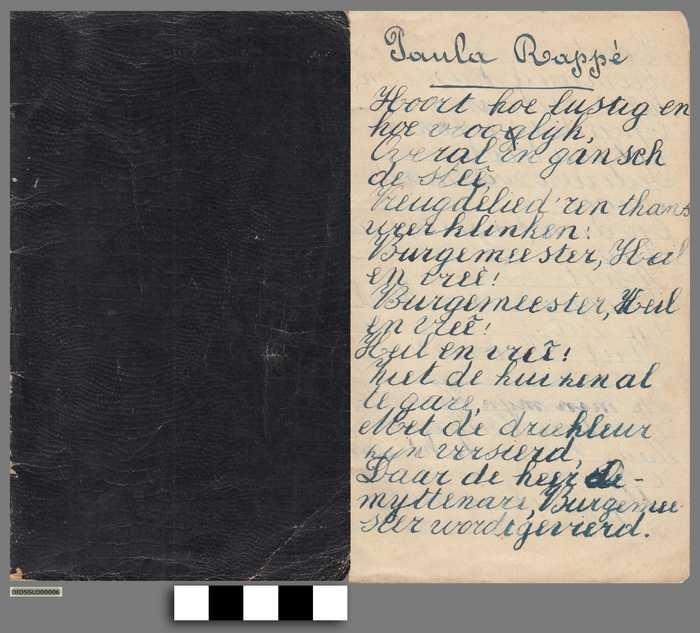 Paula Rappé
Hoort hoe lustig en
hoe vrooglijk,
Overal in gansch
de steê,
Vreugdelied'ren thans
weerklinken!
Burgemeester, Heil
en vreê!
Burgemeester, Heil
en vreê!
Heil en vreê!
Ziet de huizen al
te gare,
Met de driekleur
zijn versierd,
Daar de heer de-
myttenare, Burgemee-
ster wordt gevierd.
OIDSSLO00006